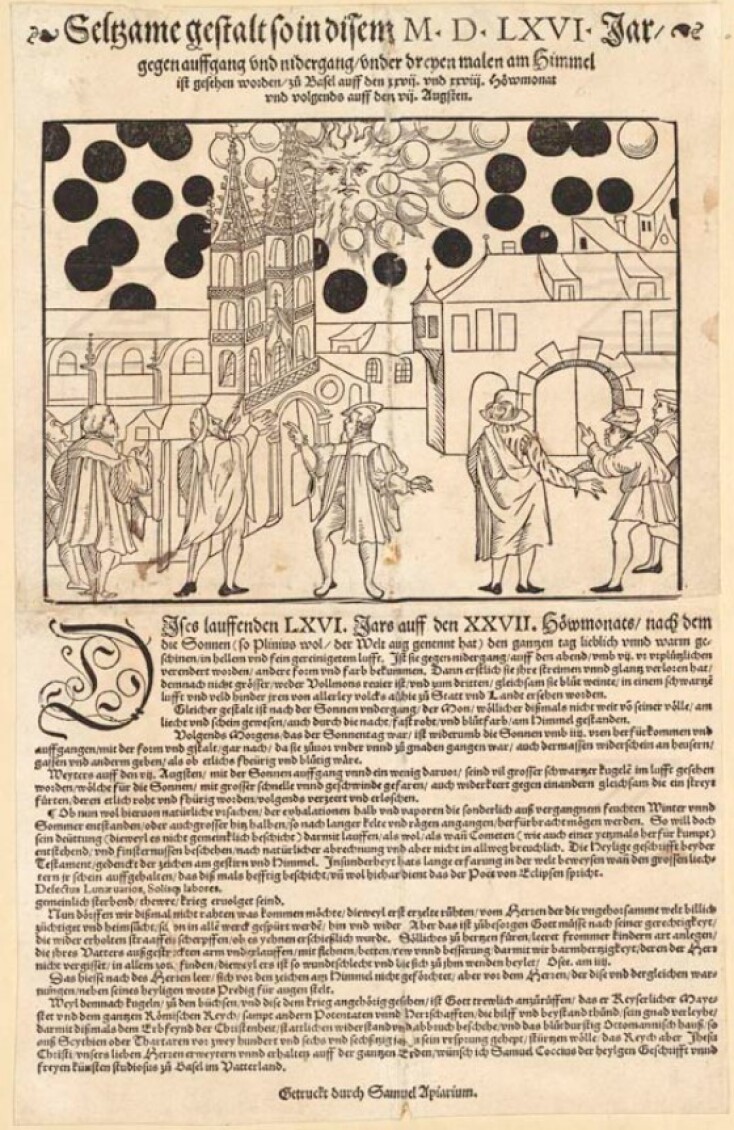 Seltzame gestalt so in disem M. D. LXVI. Jar/
gegen auffgang vnd nidergang/vnder dreyen malen am Himmel
ist gesehen worden/zů Basel auff den xxvij. vnd xxviij. Höwmonat
vnd volgends auff den vij. Augsten.
DIses lauffenden LXVI. Jars auff den XXVII. Höwmonats/ nach dem
die Sonnen (so Plinius wol/ der Welt aug genennt hat) den gantzen tag lieblich vnnd warm ge-
schinen/in hellem vnd fein gereinigetem lufft. Ist sie gegen nidergang/auff den abend/vmb vij. vr vrplützlichen
verendert worden/andere form vnd farb bekummen. Dann erstlich sie ihre streimen vnnd glantz verloren hat/
demnach nicht grösser/weder Vollmons reuier ist/vnd zum dritten/gleichsam sie blůt weinte/in einem schwartzẽ
lufft vnd veld hinder jren von allerley volcks allhie zů Statt vnd Landt ersehen worden.
Gleicher gestalt ist nach der Sonnen vndergang/der Mon/wöllicher dißmals nicht weit võ seiner völle/am
liecht vnd schein gewesen/auch durch die nacht/fast roht/vnd blůtfarb/am Himmel gestanden.
Volgends Morgens/das der Sonnentag war/ist widerumb die Sonnen vmb iiij. vren herfürkommen vnd
auffgangen/mit der form vnd gstalt/gar nach/da sie zůuor vnder vnnd zů gnaden gangen war/auch dermassen widerschein an heusern/
gassen vnd anderm geben/als ob etlichs fheürig vnd blůtig wäre.
Weyters auff den vij. Augsten/ mit der Sonnen auffgang vnnd ein wenig daruor/ seind vil grosser schwartzer kugelẽ im lufft gesehen
worden/wölche für die Sonnen/mit grosser schnelle vnnd geschwinde gefaren/auch widerkeert gegen einandern gleichsam die ein streyt
fürten/deren etlich roht vnd fhürig worden/volgends verzeert vnd erloschen.
¶ Ob nun wol hieruon natürliche vrsachen/der exhalationen halb vnd vaporen die sonderlich auß vergangnem feuchten Winter vnnd
Sommer entstanden/oder auch grosser hitz halben/so nach langer kelte vnd rägen angangen/herfürbracht mögen werden. So will doch
sein deüttung (dieweyl es nicht gemeinklich beschicht) darmit lauffen/als wol/als wañ Cometen (wie auch einer yetzmals herfür kumpt)
entstehend/vnd finsternussen beschehen/nach natürlicher abrechnung vnd aber nicht in allweg breuchlich. Die Heylige geschrifft beyder
Testament/gedenckt der zeichen am gestirn vnd Himmel. Insunderheyt hats lange erfarung in der welt beweysen wañ den grossen liech-
tern jr schein auffgehalten/das diß mals hefftig beschicht/vñ wol hiehar dient das der Poet von Eclipsen spricht.
Defectus Lunæ uarios, Solisq; labores.
gemeinlich sterbend/thewre/krieg eruolget seind.
Nun dörffen wir dißmal nicht rahten was kommen möchte/dieweyl erst erzelte růhten/vom Herren der die vngehorsamme welt billich
züchtiget vnd heimsůcht/ in alle werck gespürt werdẽ/ hin vnd wider Aber das ist zůbesorgen Gott müsse nach seiner gerechtigkeyt/
die wider erholten straaffen scherpffen/ob es yehnen erschießlich wurde. Sölliches zů hertzen füren/leeret frommer kindern art anlegen/
die jhres Vatters außgestreckten arm vnderlauffen/mit flehnen/betten/rew vnnd besserung darmit wir barmhertzigkeyt/deren der Herr
nicht vergisset/in allem zorn/finden/dieweyl er es ist so wundtschlecht vnd sie sich zů jhm wenden heylet/ Osee. am iiij.
Das hiesß nach des Herren leer/sich vor den zeichen am Himmel nicht gefürchtet/aber vor dem Herren/der dise vnd dergleichen war-
nungen/neben seines heyligen worts Predig für augen stelt.
Weyl demnach kugeln/zů den büchsen/vnd dise dem krieg angehörig gesehen/ist Gott trewlich anzůrüffen/das er Keyserlicher Maye-
stet vnd dem gantzen Römischen Reych/sampt andern Potentaten vnnd Herrschafften/die hilff vnd beystand thůnd/sein gnad verleyhe/
darmit dißmals dem Erbfeynd der Christenheit/stattlichen widerstand vnd abbruch beschehe/vnd das blůtdurstig Ottomannisch hauß/so
auß Scythien oder Thartaren vor zwey hundert vnd sechs vnd sechßtzig jar sein vrsprung gehept/stürtzen wölle/das Reych aber Jhesu
Christi/vnsers lieben Herren erweytern vnnd erhalten auff der gantzen Erden/wünsch ich Samuel Coccius der heylgen Geschrifft vnnd
freyen künsten studiosus zů Basel im Vatterland.
Getruckt durch Samuel Apiarium.